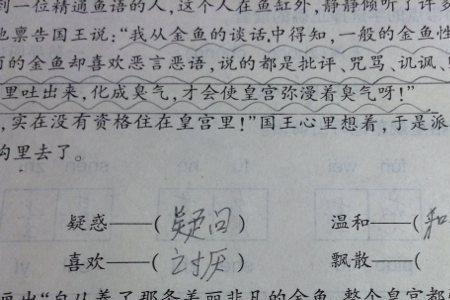 到一位精通鱼语的人,这个人在鱼缸外,静静倾听了许多
也禀告国王说:“我从金鱼的谈话中得知,一般的金鱼性
的金鱼却喜欢恶言恶语,说的都是批评、咒骂、讥讽、
里吐出来,化成臭气,才会使皇宫弥漫着臭气呀!”
,实在没有资格住在皇宫里!”国王心里想着,于是派
沟里去了。
疑惑——(疑问) 温和——(和
喜欢——(讨厌) 飘散——(
出“自从养了那条美丽非凡的金鱼,整个皇宫都